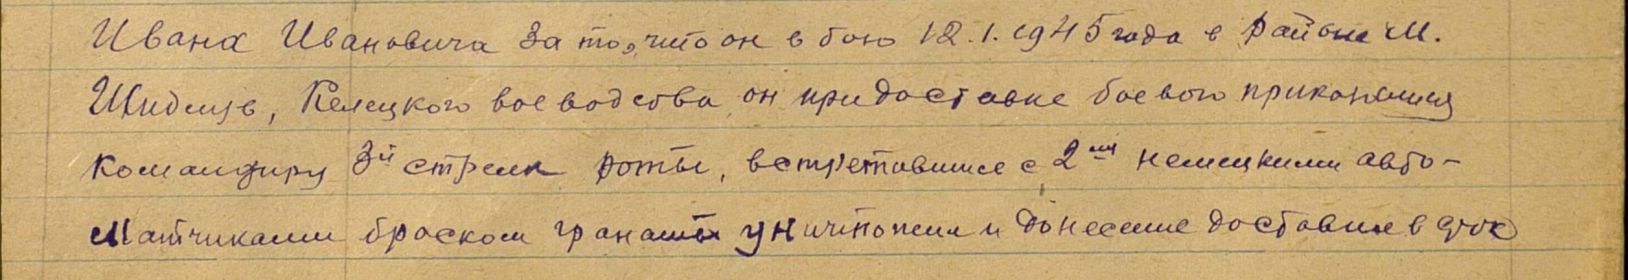 Ивана Ивановича за то, что он в бою 12.1.1945 года в районе м.
Шидлув, Келецкого воеводства он при доставке боевого приказания
командиру 3й стрелк роты, встретившись с 2мя немецкими авто-
матчиками броском гранаты уничтожил и донесение доставил в срок